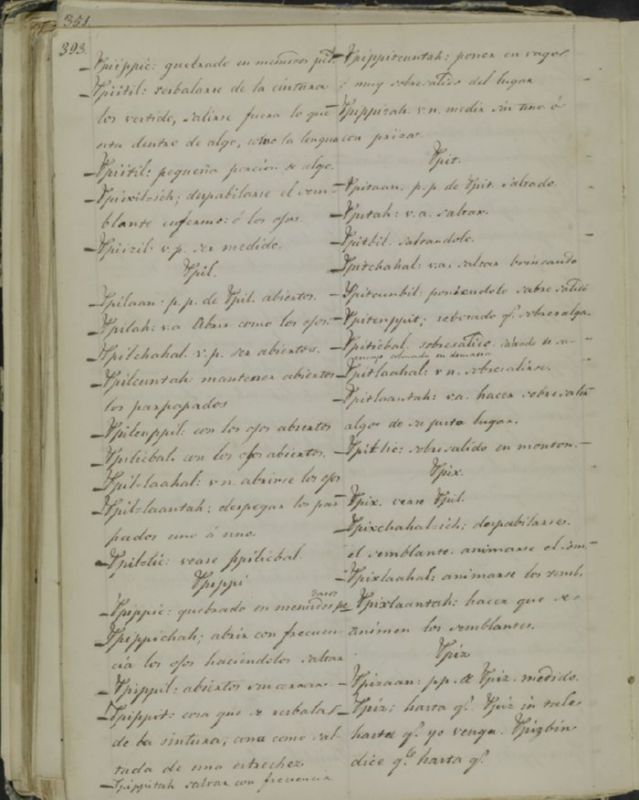 351.
393.
Ppippic: quebrado en menudos
Ppiitil: resbalarse de la cintura
los vertido, salirse fuera lo que
esta dentro de algo, como la lengua
Ppiitil: pequeña porcion de algo.
despabilarse el sem-
blante enfermo: ó los ojos.
Ppiizil: v.p. ser medido.
Ppil.
Ppilaan: p.p. de Ppil. abiertos.
Ppilah: v.a. Abrir como los ojos.
Ppilchahal. v.p. ser abiertos.
Ppilcuntah: mantener abiertos
los parpapados
Ppilenppil: con los ojos abiertos
Ppilicbal: con los ojos abiertos.
Ppil-laahal: v.n. abrirse los ojos
Ppil-laantah; despegar los par
pados uno á uno.
Ppil-lic: vease ppilicbal.
Ppippi
Ppippic: quebrado en menudos
Ppippichah; abrir con frecuen
cia los ojos haciendolos saltar
Ppippil: abiertos sin cerrar
Ppippit: cosa que se resbala
de la sintura, como sal
tada de una estrechez
Ppippitah saltar con frecuencia
Ppippitcuntah: poner en vago
muy sobresalido del lugar
Ppippizah v.n. medir sin tino ó
con prisa.
Ppit.
Ppitaan. p.p. de Ppit. saltado.
Ppitah: v.a. saltar.
Ppitbil. saltandolo.
Ppitchahal: v.a. saltar brincando
Ppitcunbil: poniendolo sobresalido
Ppitenppit; rebosado q.
Ppiticbal. sobresalido
Ppitlaahal: v.n. sobresalirse.
Ppitlaantah: v.a. hacer sobresalir
algo de su justo lugar.
Ppitlic: sobresalido en monton.
Ppix.
Ppix. vease Ppil.
despabilarse
el semblante. animarse el sem-
Ppixlaahal: animarse los semb.
Ppixlaantah: hacer que se
animen los semblantes.
Ppiz
Ppizaan: p.p. de Ppiz. medido.
Ppiz: hasta q. Ppiz in
hasta q. yo venga. Ppizbin
dice q. hasta q.